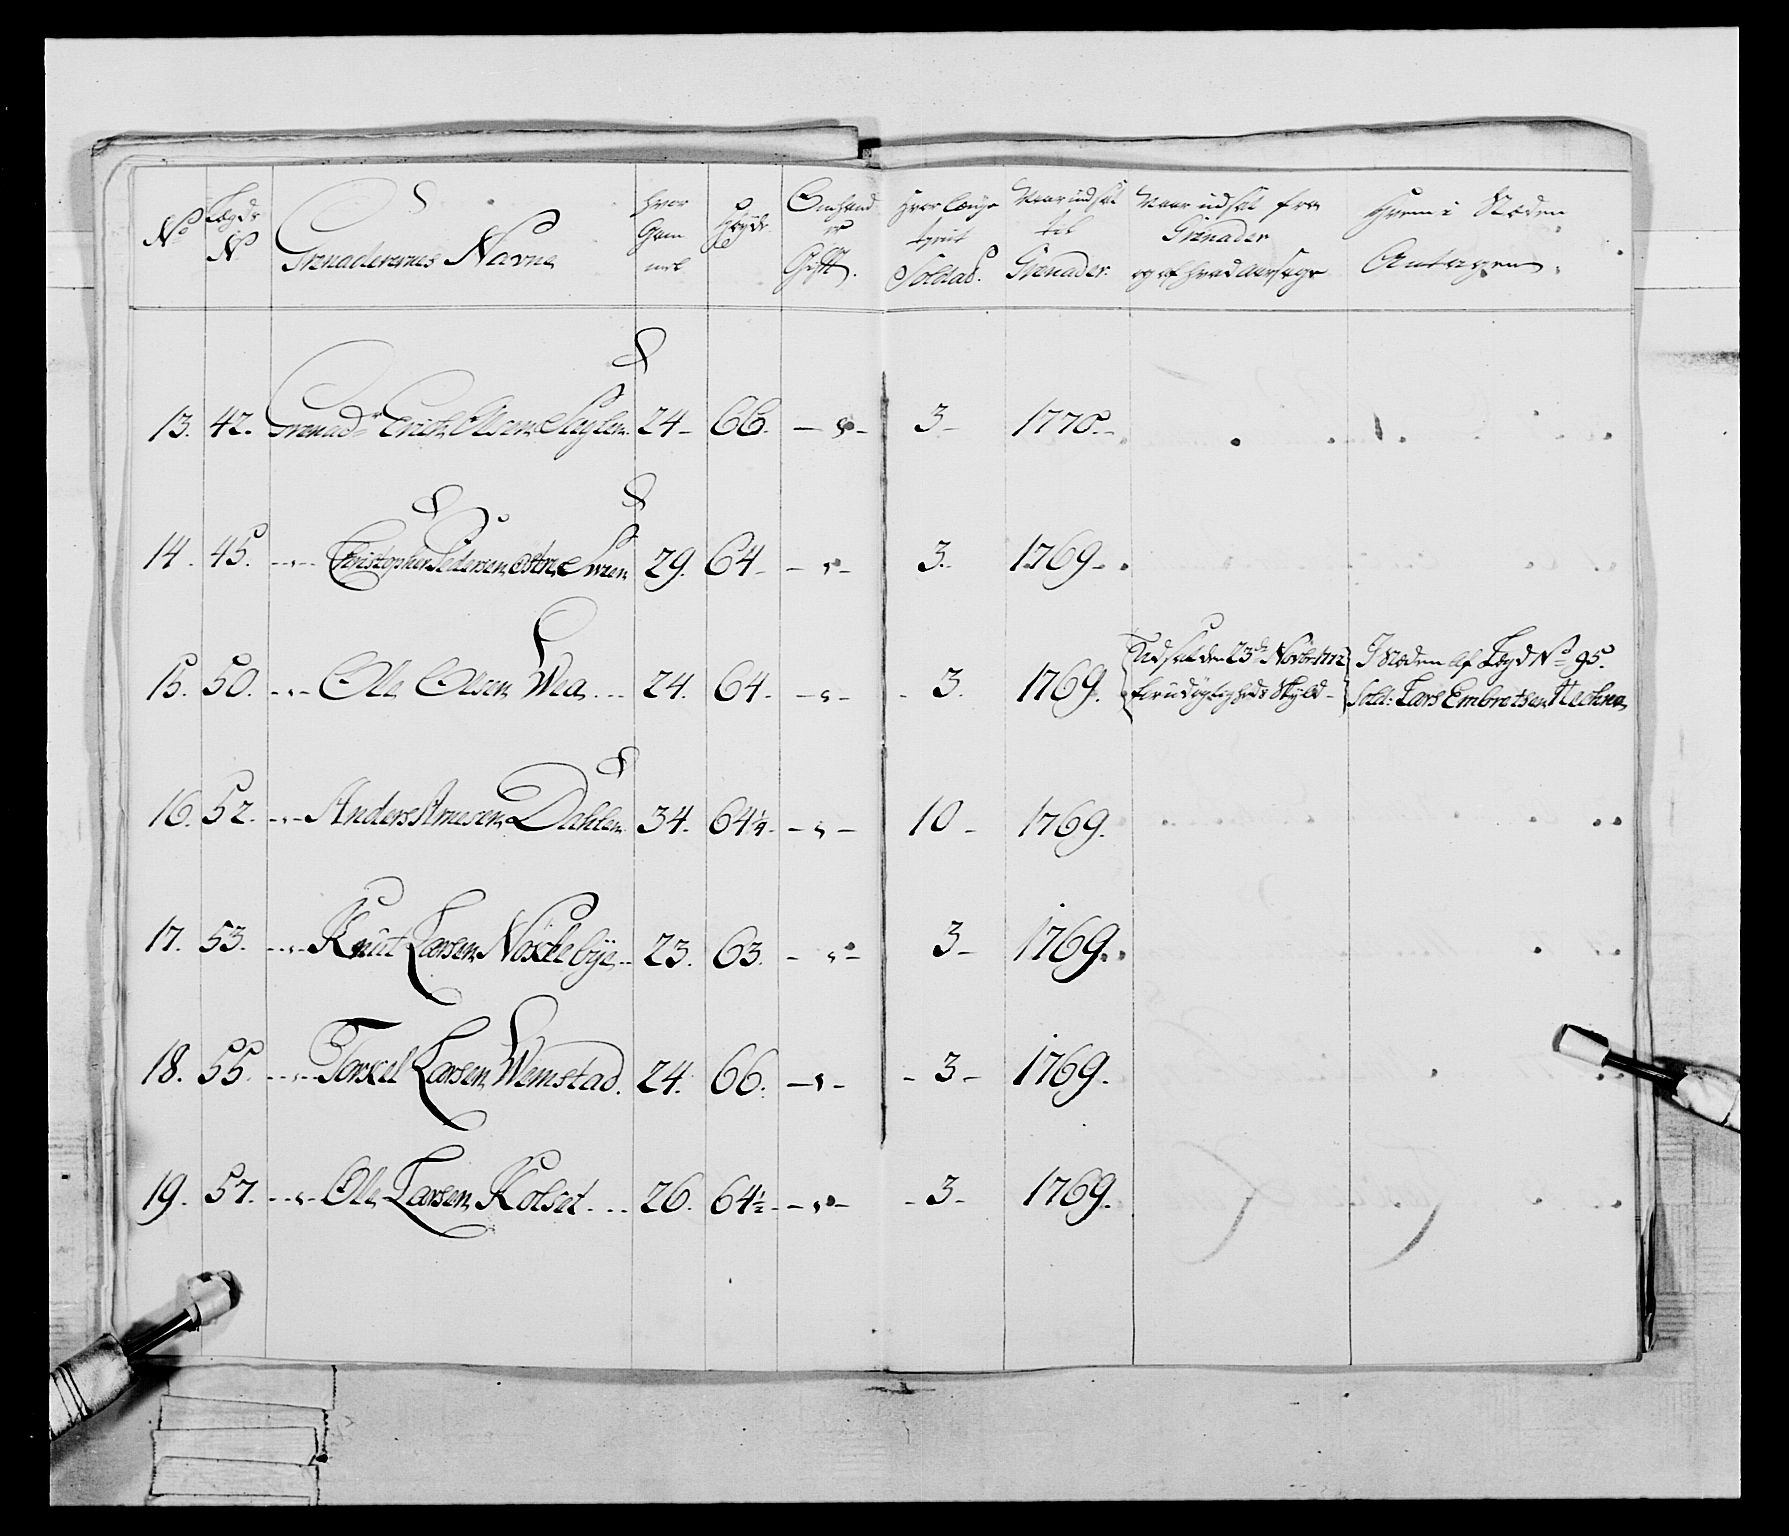 No
Lægds
No
Grenaderernes Navne
Hvor
Gam
mel
Høyde
Om hand
er
Gift.
Hvor længe
tient
Soldat.
Naar udsat
til
Grenader.
Naar udsat fra
Grenader
og af hvad aarsage
Hvem i Stæden
Antagen.
13. 42. Grenadr Erich Olsen 24 - 66. - " - 3 - 1770 -
14. 45. - " - Christopher Pedersen østre 29. 64 - - " - 3. 1769 -
15. 50. - " - Ole Olsen Wea 24. 64. - " - - 3. 1769.
Udsat den 23de Novbr 1772
for udygtigheds Skyld -
I Stæden af Lægd No 95.
Sold: Lars Embretsen
16. 52. - " - Anders Arnesen Dahlen 34. 64¼. - " - 10 - 1769.
17. 53. - " - Knut Larsen Noskebye 23. 63. - " - 3 - 1769.
18. 55. - " - Torkel Larsen Wemstad. 24. 66. - " - - 3 - 1769.
19. 57. - " - Ole Larsen Kolset 26. 64½ - " - - 3 - 1769.